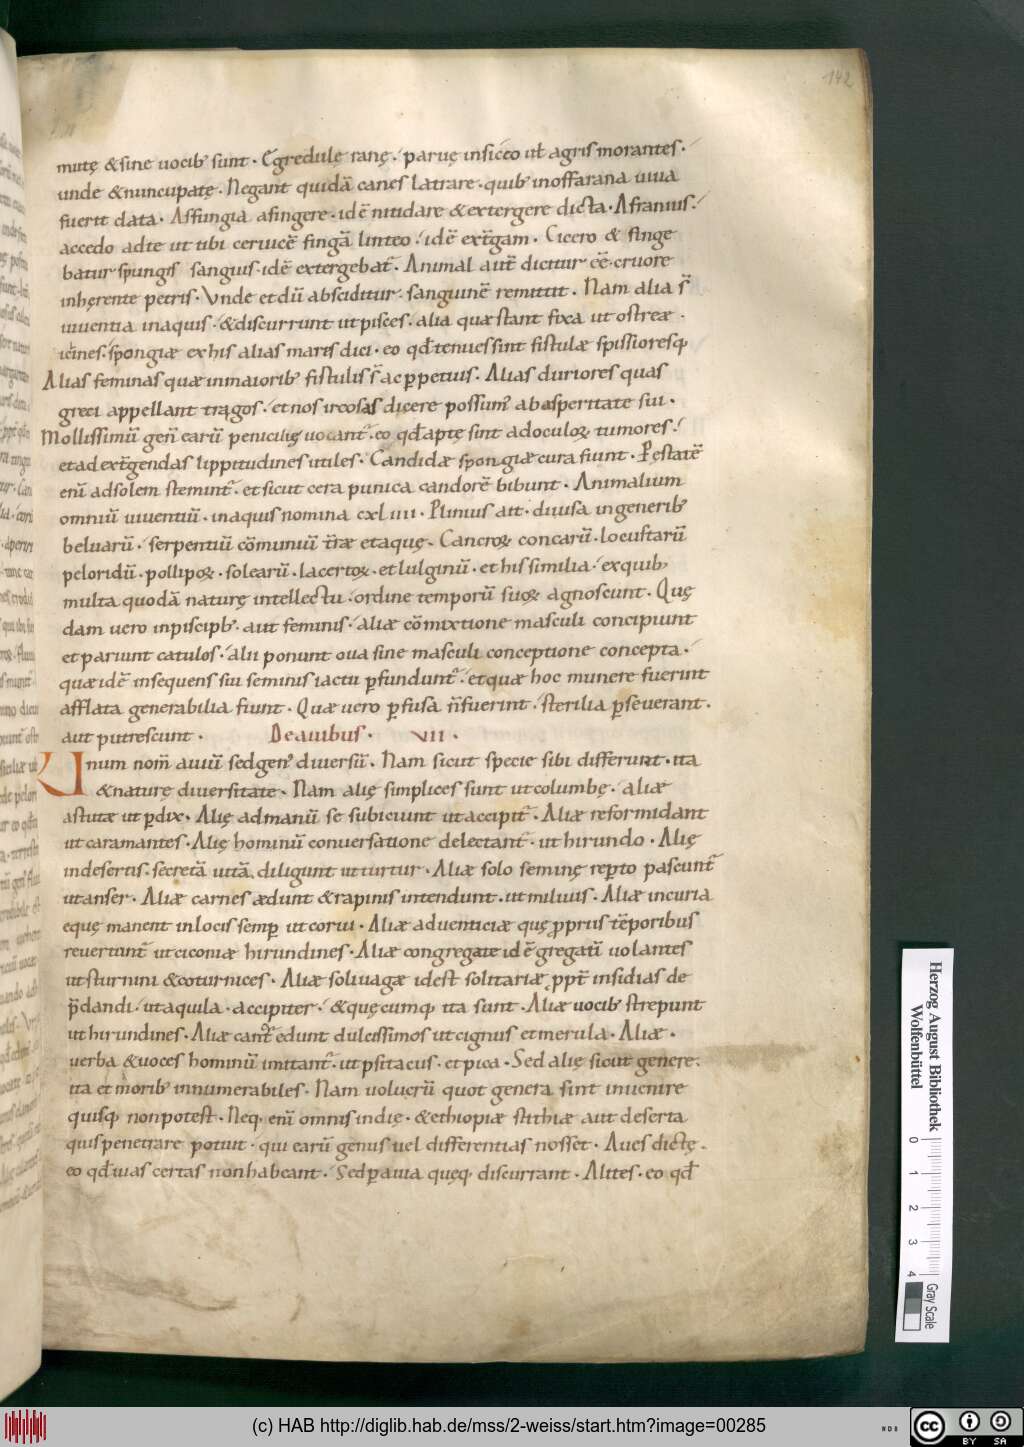 142
mutę & sine uocib; sunt · Egredulę ranę · paruę insicco uł agris morantes ·
unde & nuncupatę · Negant quidā canes latrare · quib; inoffa rana uiua
fuerit data · Assungia afingere · idē nitidare & extergere dicta · Afranius ·
accedo adte ut tibi ceruicē fingā linteo · idē extgam · Cicero & finge
batur spungis sanguis · idē extergebat̄ · Animal aut̄ dicitur ēē · cruore
inhęrente petris · Vnde et dū absciditur · sanguinē remittit · Nam alia s̄
uiuentia inaquis · & discurrunt ut pisces · alia quæ stant fixa ut ostreæ ·
spongiæ ex his alias maris dici · eo qđ tenues sint fistulæ spissioresq;
Alias feminas quæ inmaiorib; fistulis s̄ ac ppetuis · Alias duriores quas
greci appellant tragos · et nos ircosas dicere possum; ab asperitate sui ·
Mollissimū gen; earū penicilię uocant̄ · eo qđ aptę sint ad oculoꝝ tumores ·
et ad extgendas lippitudines utiles · Candidæ spongiæ cura fiunt · P ęstatē
enī ad solem sternunt̄ · et sicut cera punica candorē bibunt · Animalium
omniū uiuentiū · inaquis nomina cxliiii · Plinius ait · diuisa in generib;
beluarū · serpentiū cōmuniū tr̄æ et aquę · Cancroꝝ concarū · locustarū
peloridū · pollipoꝝ · solearū · lacertoꝝ · et lulginū · et his similia · ex quib;
multa quodā naturę intellectu · ordine temporū suoꝝ agnoscunt · Quę
dam uero inpiscib; · aut feminis · aliæ cōmixtione masculi concipiunt
et pariunt catulos · alii ponunt oua sine masculi conceptione concepta ·
quæ idē insequens sui seminis iactu pfundunt̄ · et quæ hoc munere fuerint
afflata generabilia fiunt · Quæ uero pfusa n̄ fuerint · sterilia pseuerant ·
aut putrescunt · De auibus · VII ·
Unum nom̄ auiū sed gen; diuersū · Nam sicut specie sibi differunt · ita
& naturę diuersitate · Nam alię simplices sunt ut columbę · aliæ
astutæ ut pdix · Alię admanū se subiciunt ut accipit̄ · Aliæ reformidant
ut caramantes · Alię hominū conuersatione delectant̄ · ut hirundo · Alię
indesertis · secretā uitā, diligunt ut turtur · Aliæ solo seminę repto pascunt̄
ut anser · Aliæ carnes ædunt & rapinis intendunt · ut miluus · Aliæ incuria
eque manent inlocis semp ut corui · Aliæ aduenticiæ quę pprius tēporibus
reuertunt̄ ut ciconiæ hirundines · Aliæ congregate idē gregatī uolantes
ut sturnini & coturnices · Aliæ soliuagæ idest solitariæ ppt̄ insidias de
p̄dandi · ut aquila · accipiter · & quęcumq; ita sunt · Aliæ uocib; strepunt
ut hirundines · Aliæ cant; edunt dulcissimos ut cignus et merula · Aliæ ·
uerba & uoces hominū imitant̄ · ut psitacus · et pica · Sed alię sicut genere ·
ita et morib; innumerabiles · Nam uolucrū quot genera sint inuenire
quisq; non potest · Neq; enī omnis indię · & ethiopiæ stithiæ aut deserta
quis penetrare potuit · qui earū genus uel differentias nosset · Aues dictę ·
eo qđ uias certas non habeant · Sed p auia quęq; discurrant · Alites · eo qđ
Herzog August Bibliothek
Wolfenbüttel
0 1 2 3 4
Gray Scale
(c) HAB http://diglib.hab.de/mss/2-weiss/start.htm?image=00285
WDB
cc BY SA